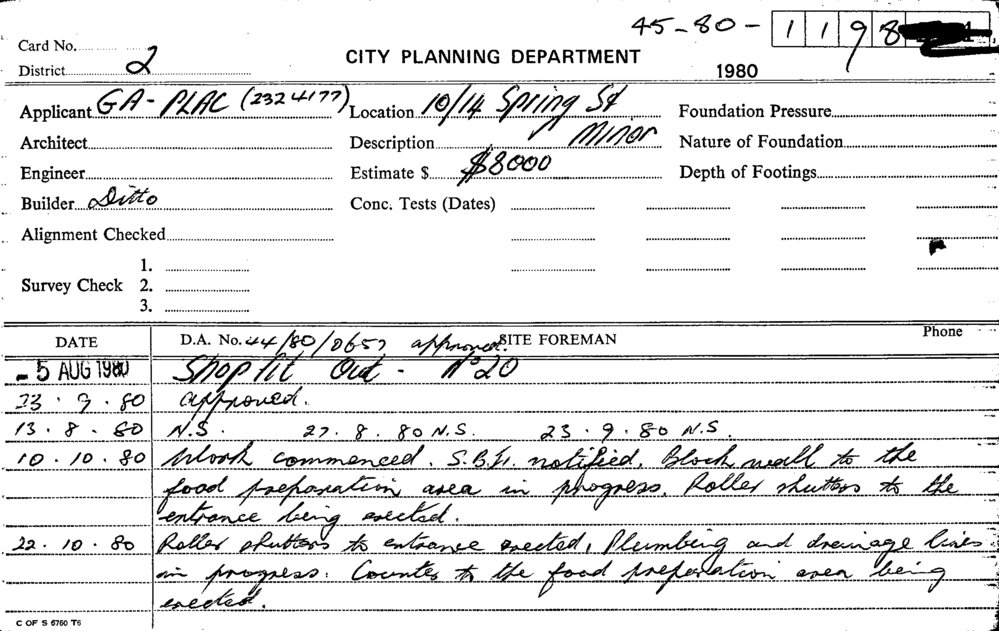 45-80-1198
Card No.
District 2
CITY PLANNING DEPARTMENT
1980
Applicant GA-PLAC (2324177) Location 10/14 Spring St Foundation Pressure
Architect Description Minor Nature of Foundation
Engineer Estimate $ $8000 Depth of Footings
Builder Ditto Conc. Tests (Dates)
Alignment Checked
1.
Survey Check 2.
3.
DATE D.A. No. 44/80/0657 approved. SITE FOREMAN Phone
- 5 AUG 1980 Shop fit Out - No 20
23.7.80 approved.
13.8.80 N.S. 27.8.80 N.S. 23.9.80 N.S.
10.10.80 Work commenced. S.B.I. notified. Block wall to the
food preparation area in progress. Roller shutters to the
entrance being erected.
22.10.80 Roller shutters to entrance erected, Plumbing and drainage lines
in progress. Counter to the food preparation area being
erected.
C OF S 6760 T6